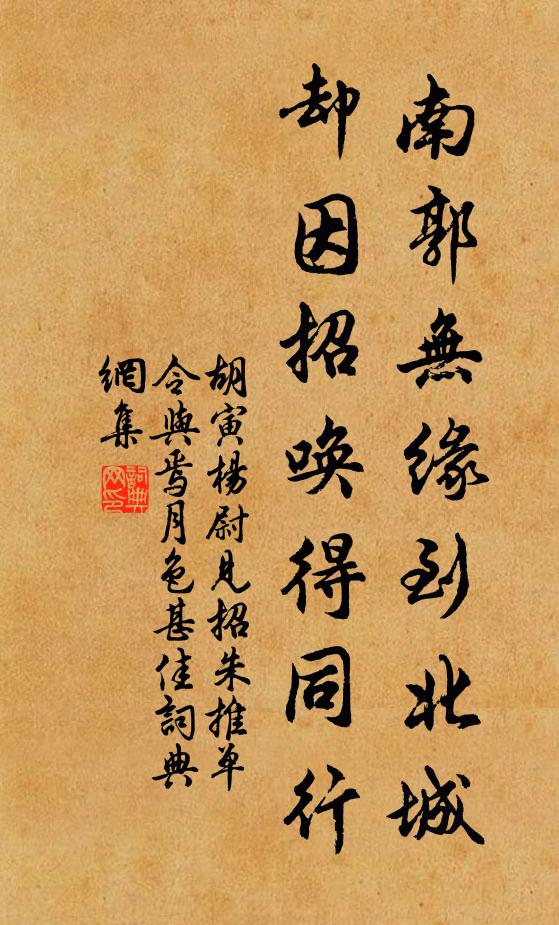 南郭無緣到北城
却因招喚得同行
胡寅楊尉見招朱推单
令與焉月色甚佳詞典
網集
詞典网印